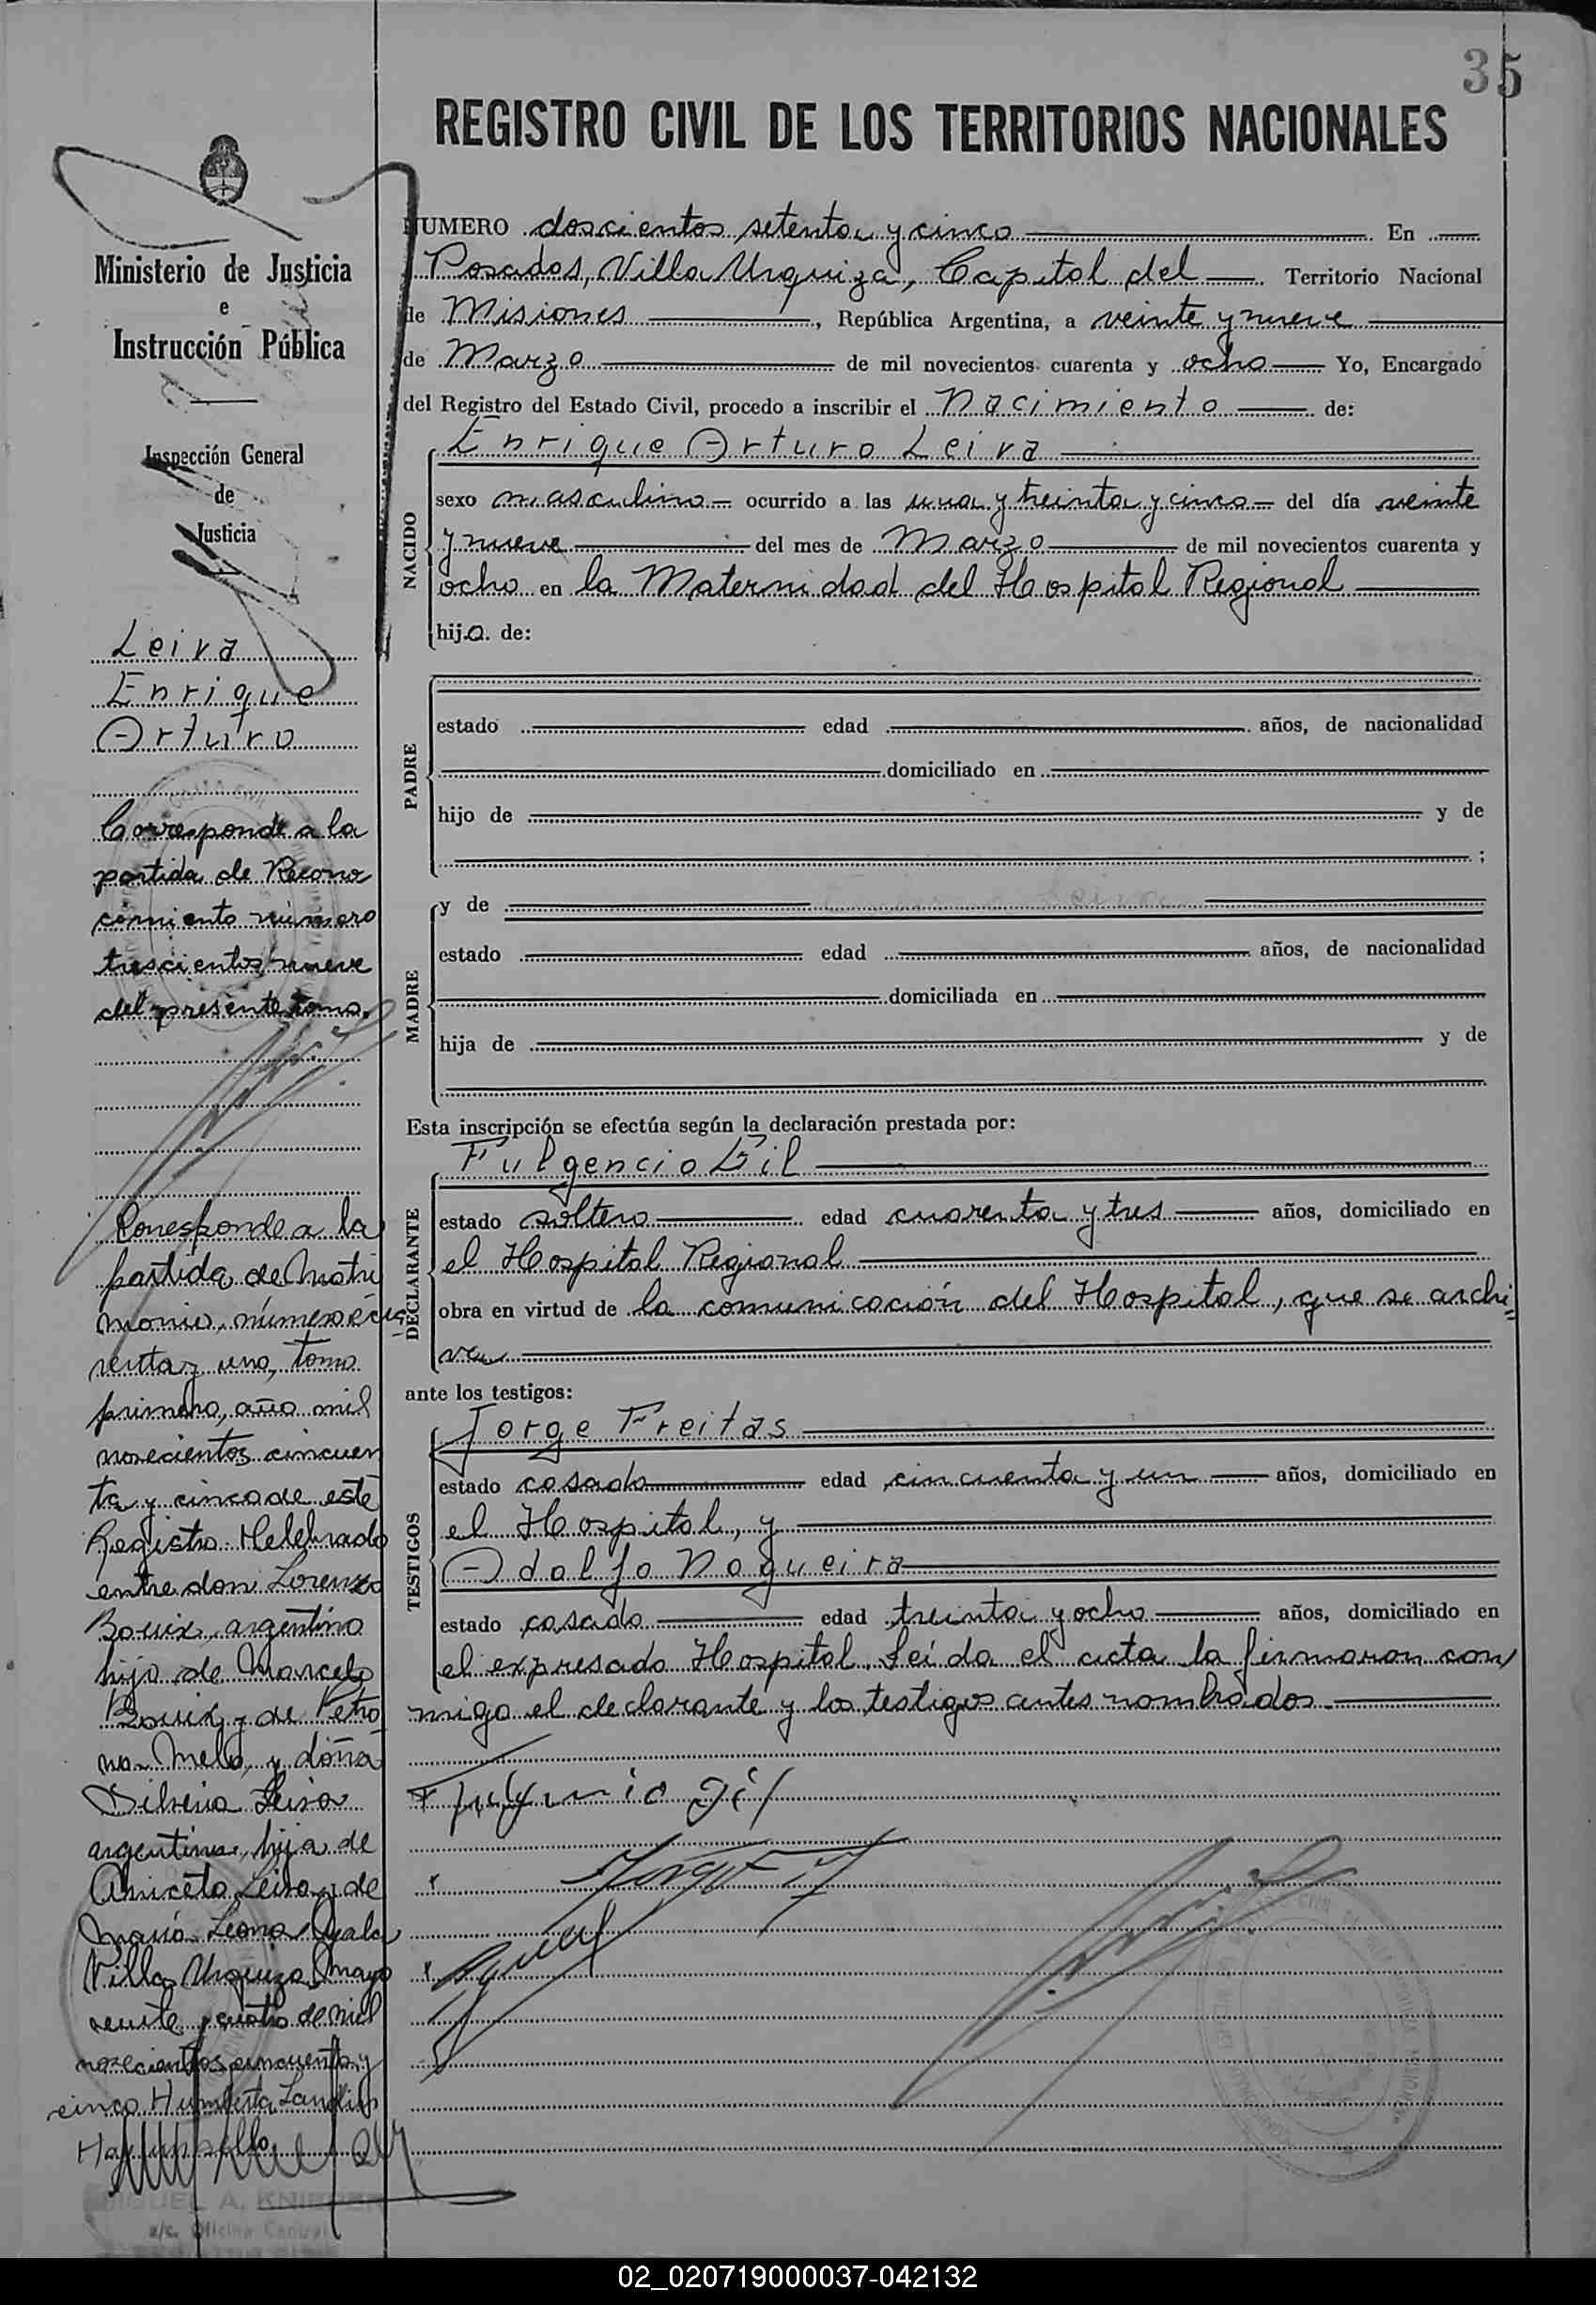 35
REGISTRO CIVIL DE LOS TERRITORIOS NACIONALES
Ministerio de Justicia
e
Instrucción Pública
Inspección General
de
Justicia
Leiva
Enrique
Arturo
Corresponde a la
partida de Recono
cimiento número
trescientos nueve
del presente tomo.
Corresponde a la
partida de Matri
monio, número
y uno, tomo
primero, año mil
novecientos cincuen
ta y cinco de este
Registro. Celebrado
entre don Lorenzo
Bouix, argentino
hijo de Marcelo
Bouix y de Petro
na Melo, y doña
Silveria Leiva
argentina, hija de
Aniceto Leiva y de
María Leona Ayala
Villa Urquiza, Mayo
veinte y cuatro de mil
novecientos cincuenta y
cinco
NUMERO doscientos setenta y cinco En
Posadas, Villa Urquiza, Capital del Territorio Nacional
de Misiones, República Argentina, a veinte y nueve
de Marzo de mil novecientos cuarenta y ocho Yo, Encargado
del Registro del Estado Civil, procedo a inscribir el Nacimiento de:
NACIDO
Enrique Arturo Leiva
sexo masculino ocurrido a las una y treinta y cinco del día veinte
y nueve del mes de Marzo de mil novecientos cuarenta y
ocho en la Maternidad del Hospital Regional
hijo de:
PADRE
estado edad años, de nacionalidad
domiciliado en
hijo de y de
;
MADRE
y de
estado edad años, de nacionalidad
domiciliada en
hija de y de
Esta inscripción se efectúa según la declaración prestada por:
DECLARANTE
Fulgencio Gil
estado soltero edad cuarenta y tres años, domiciliado en
el Hospital Regional
obra en virtud de la comunicación del Hospital, que se archi
va
ante los testigos:
TESTIGOS
Jorge Freitas
estado casado edad cincuenta y un años, domiciliado en
el Hospital, y
Adolfo Nogueira
estado casado edad treinta y ocho años, domiciliado en
el expresado Hospital. Leída el acta la firmaron con
migo el declarante y los testigos antes nombrados.
Fulgencio Gil
MIGUEL A.
a/c. Oficina Central
02_020719000037-042132